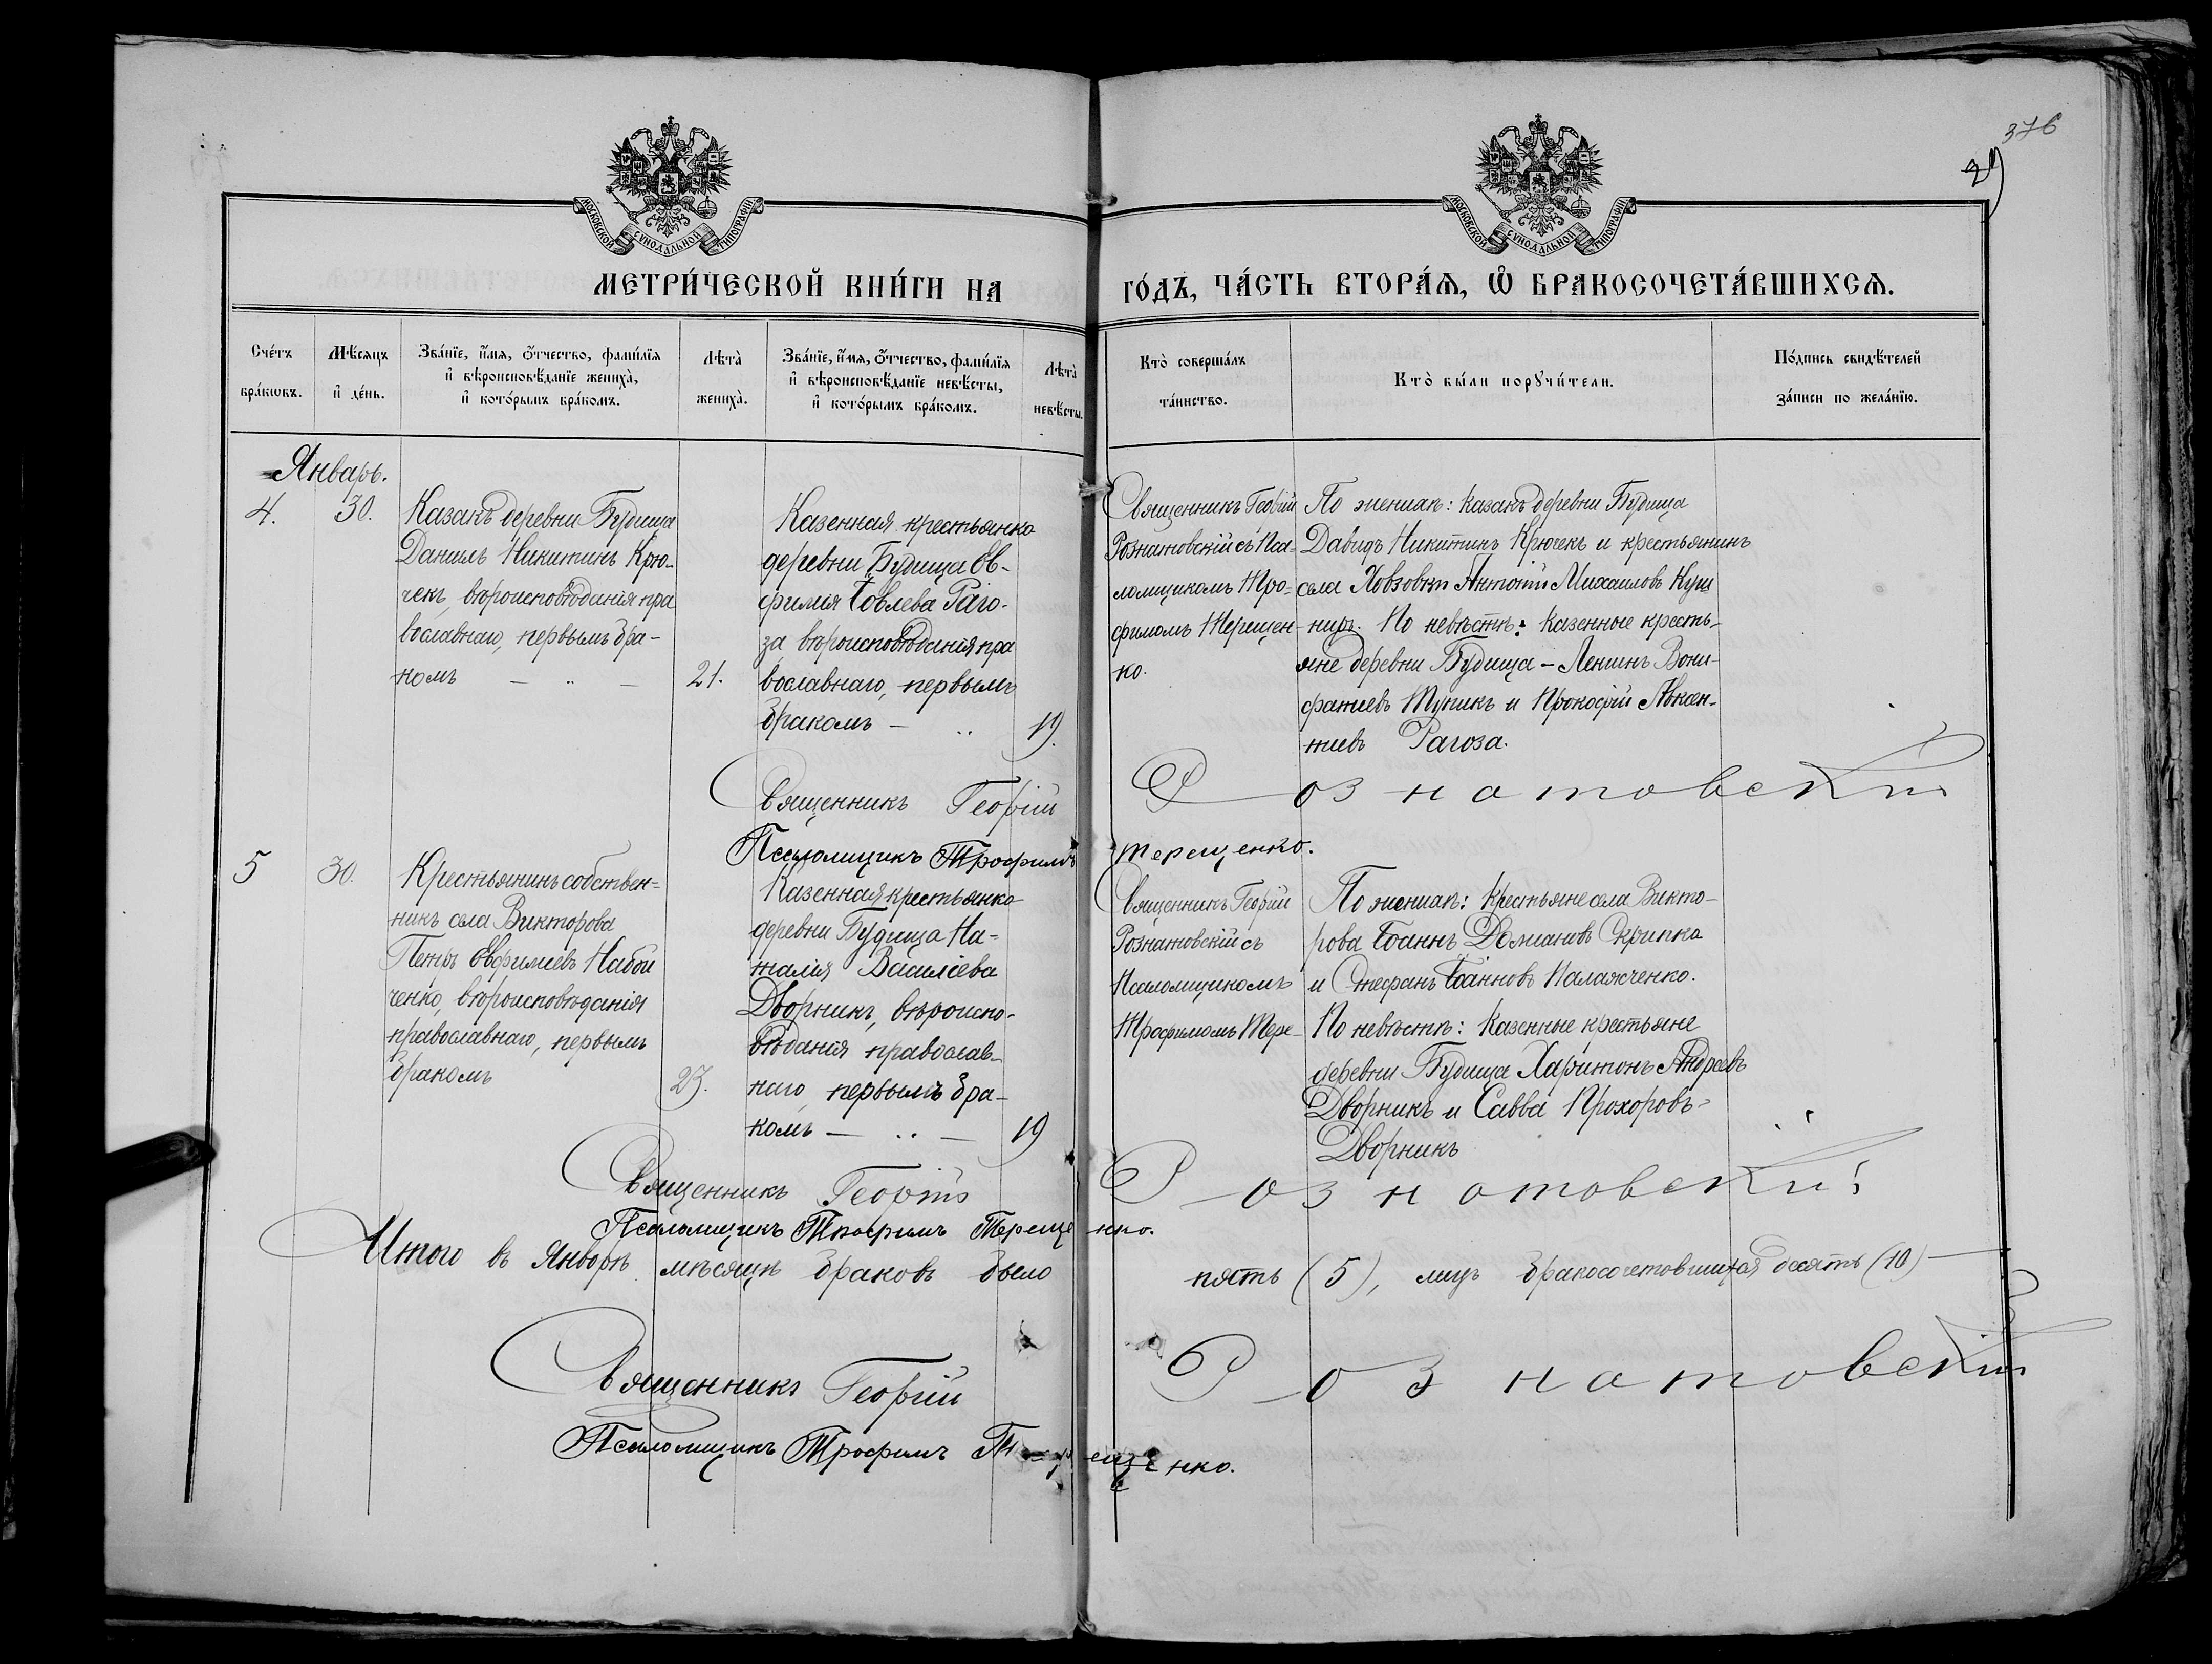 376
МОСКОВСКОЙ СѴНОДАЛЬНОЙ ТИПОГРАФІИ
МОСКОВСКОЙ СѴНОДАЛЬНОЙ ТИПОГРАФІИ
МЕТРИ́ЧЕСКОЙ КНИ́ГИ НА
ГО́ДЪ, ЧА́СТЬ ВТОРА́Ѧ, Ѡ҆ БРАКОСОЧЕТА́ВШИХСѦ.
Сче́тъ
бра́кѡвъ.
Мѣ́сѧцъ
и҆ де́нь.
Зва́нїе, и҆́мѧ, ѻ҆́тчество, фами́лїѧ
и҆ вѣроисповѣ́данїе жениха̀,
и҆ кото́рымъ бра́комъ.
Лѣта̀
жениха̀.
Зва́нїе, и҆́мѧ, ѻ҆́тчество, фами́лїѧ
и҆ вѣроисповѣ́данїе невѣ́сты,
и҆ кото́рымъ бра́комъ.
Лѣта̀
невѣ́сты.
Кто̀ соверша́лъ
та́инство.
Кто̀ бы́ли порꙋчи́тели.
По́дпись свидѣ́телей
за́писи по жела́нїю.
Январь.
4.
30.
Казакъ деревни Будища
Даниилъ Никитинъ Крю-
чекъ, вѣроисповѣданія пра
вославнаго, первымъ бра-
комъ — „ —
21.
Казенная крестьянка
деревни Будища Ев-
фимія Іовлева Раго-
за вѣроисповѣданія пра
вославнаго, первымъ
бракомъ — „
19.
Священникъ Георгій
Рознатовскій съ Пса-
ломщикомъ Тро-
фимомъ Терещен-
ко.
По женихѣ: казакъ деревни Будища
Давидъ Никитинъ Крючекъ и крестьянинъ
села Ховзовки Антоній Михаиловъ Куш
ниръ. По невѣстѣ: казенные кресть-
яне деревни Будища – Логинъ Вони-
фатіевъ Тупикъ и Прокофій Авксен-
тіевъ Рагоза.
Священникъ Георгій Рознатовскій
Псаломщикъ Трофимъ Терещенко.
5
30.
Крестьянинъ собствен-
никъ села Викторова
Петръ Евфиміевъ Набой
ченко, вѣроисповѣданія
православнаго, первымъ
бракомъ
23.
Казенная крестьянка
деревни Будища На-
талія Василіева
Дворникъ, вѣроиспо-
вѣданія православ-
наго, первымъ бра-
комъ — „ —
19
Священникъ Георгій
Рознатовскій съ
Псаломщикомъ
Трофимомъ Тере-
По женихѣ: Крестьяне села Викто-
рова Іоаннъ Доміановъ Скрипка
и Стефанъ Іоанновъ Палажченко.
По невѣстѣ: казенные крестьяне
деревни Будища Харитонъ Андреевъ
Дворникъ и Савва Прохоровъ
Дворникъ
Священникъ Георгій Рознатовскій
Псаломщикъ Трофимъ Терещенко.
Итого въ Январѣ мѣсяцѣ браковъ было пять (5), лицъ бракосочетовшихся десять (10) —
Священникъ Георгій Рознатовскій
Псаломщикъ Трофимъ Терещенко.